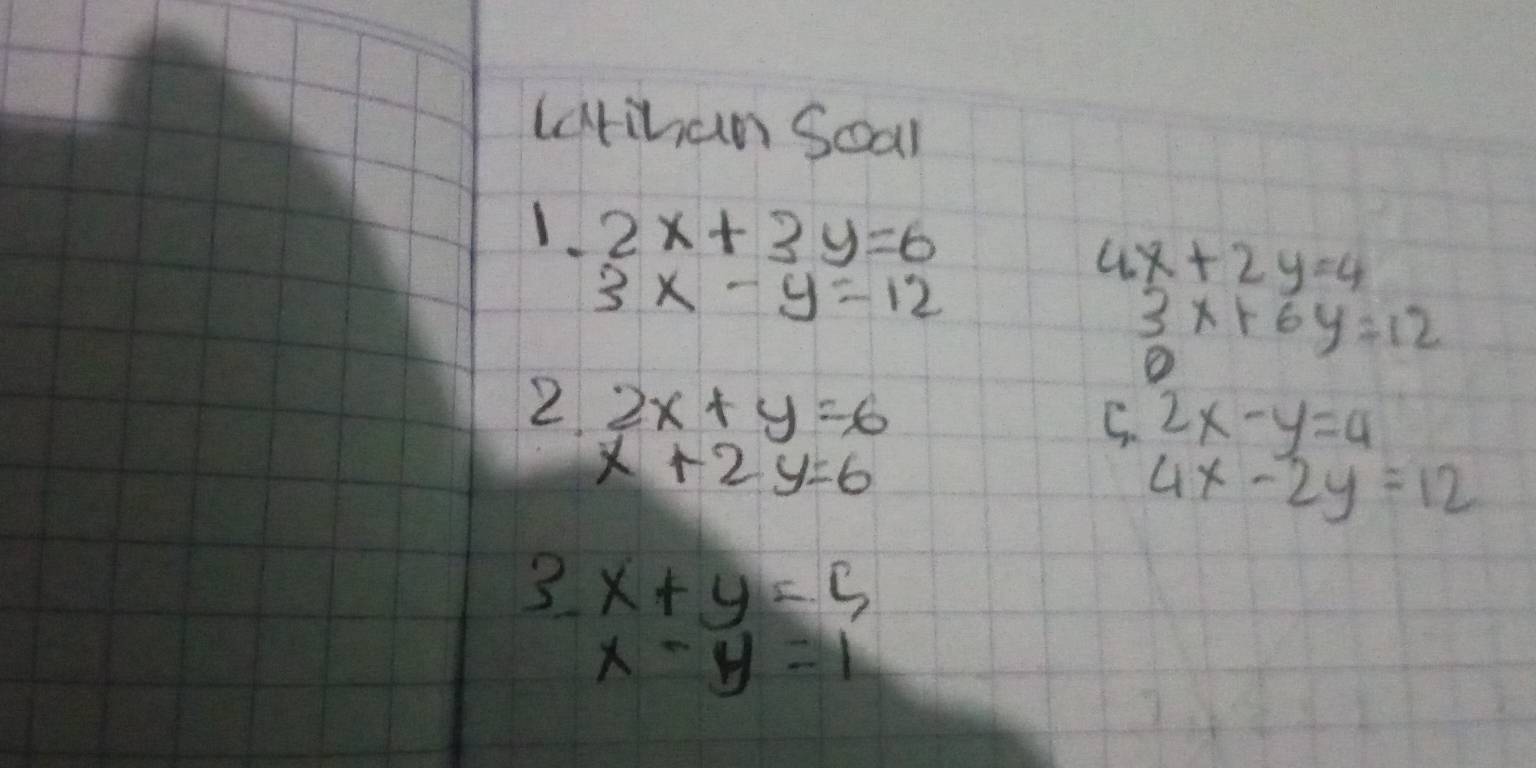 Latihan Soal
1. 2x + 3y = 6
3x - y = 12
2. 2x + y = 6
x + 2y = 6
3. x + y = 5
x - y = 1
4x + 2y = 4
3x + 6y = 12
0
5. 2x - y = 4
4x - 2y = 12